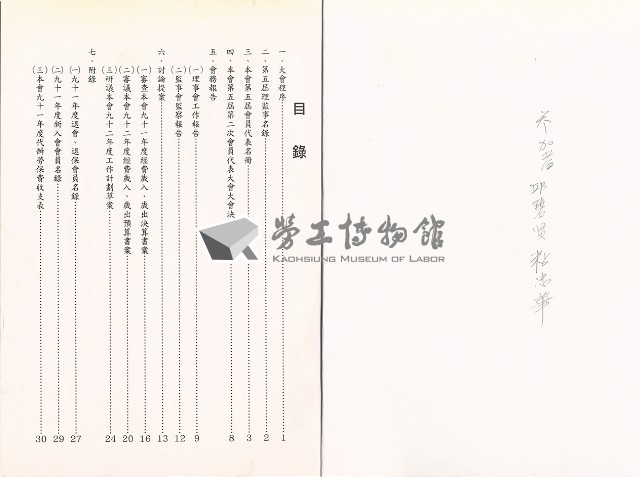 參加者 邱碧
目錄
一、大會程序 1
二、第五屆理監事名錄 2
三、本會第五屆會員代表名冊 3
四、本會第五屆第二次會員代表大會大會決 8
五、會務報告
(一)理事會工作報告 9
(二)監事會監察報告 12
六、討論提案 13
(一)審查本會九十一年度經費歲入、歲出決算書案 16
(二)審議本會九十二年度經費歲入、歲出預算書案 20
(三)研議本會九十二年度工作計劃草案 24
七、附錄
(一)九十一年度退會、退保會員名錄 27
(二)九十一年度新入會會員名錄 29
(三)本會九十一年度代辦勞保費收支表 30
勞工博物館
KAOHSIUNG MUSEUM OF LABOR